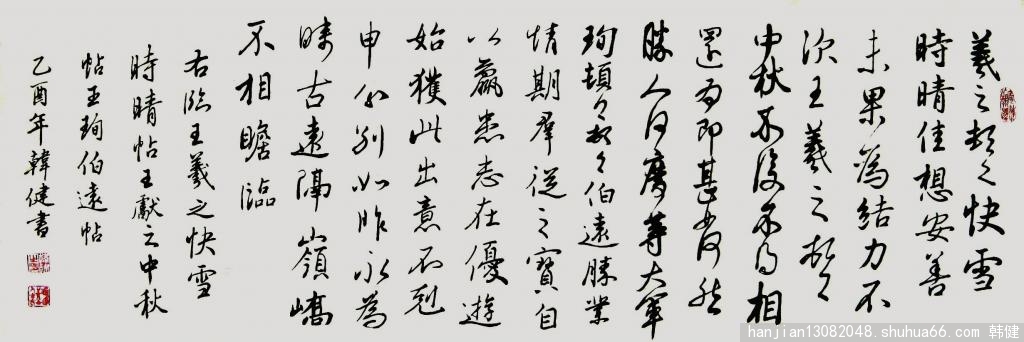 羲之頓首快雪
時晴佳想安善
未果為結力不
次王羲之頓首
中秋不復不得相
還為即甚省如何然
勝人何慶等大軍
珣頓首頓首伯遠勝業
情期羣從之寶自
以羸患志在優遊
始獲此出意不剋
申分別如昨永為
疇古遠隔嶺嶠
不相瞻臨
右臨王羲之快雪
時晴帖王獻之中秋
帖王珣伯遠帖
乙酉年韓健書
hanjian13082048.shuhua66.com 韩健